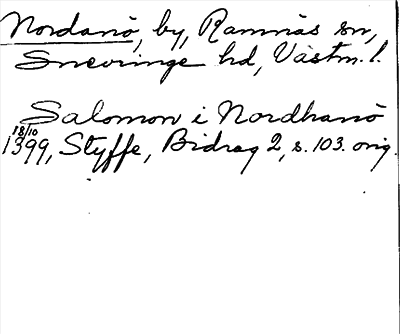 Nordanö, by, Ramnäs sn,
Snevringe hd, Västm. l.
Salomon i Nordhanö
18/10
1399, Styffe, Bidrag 2, s. 103. orig.